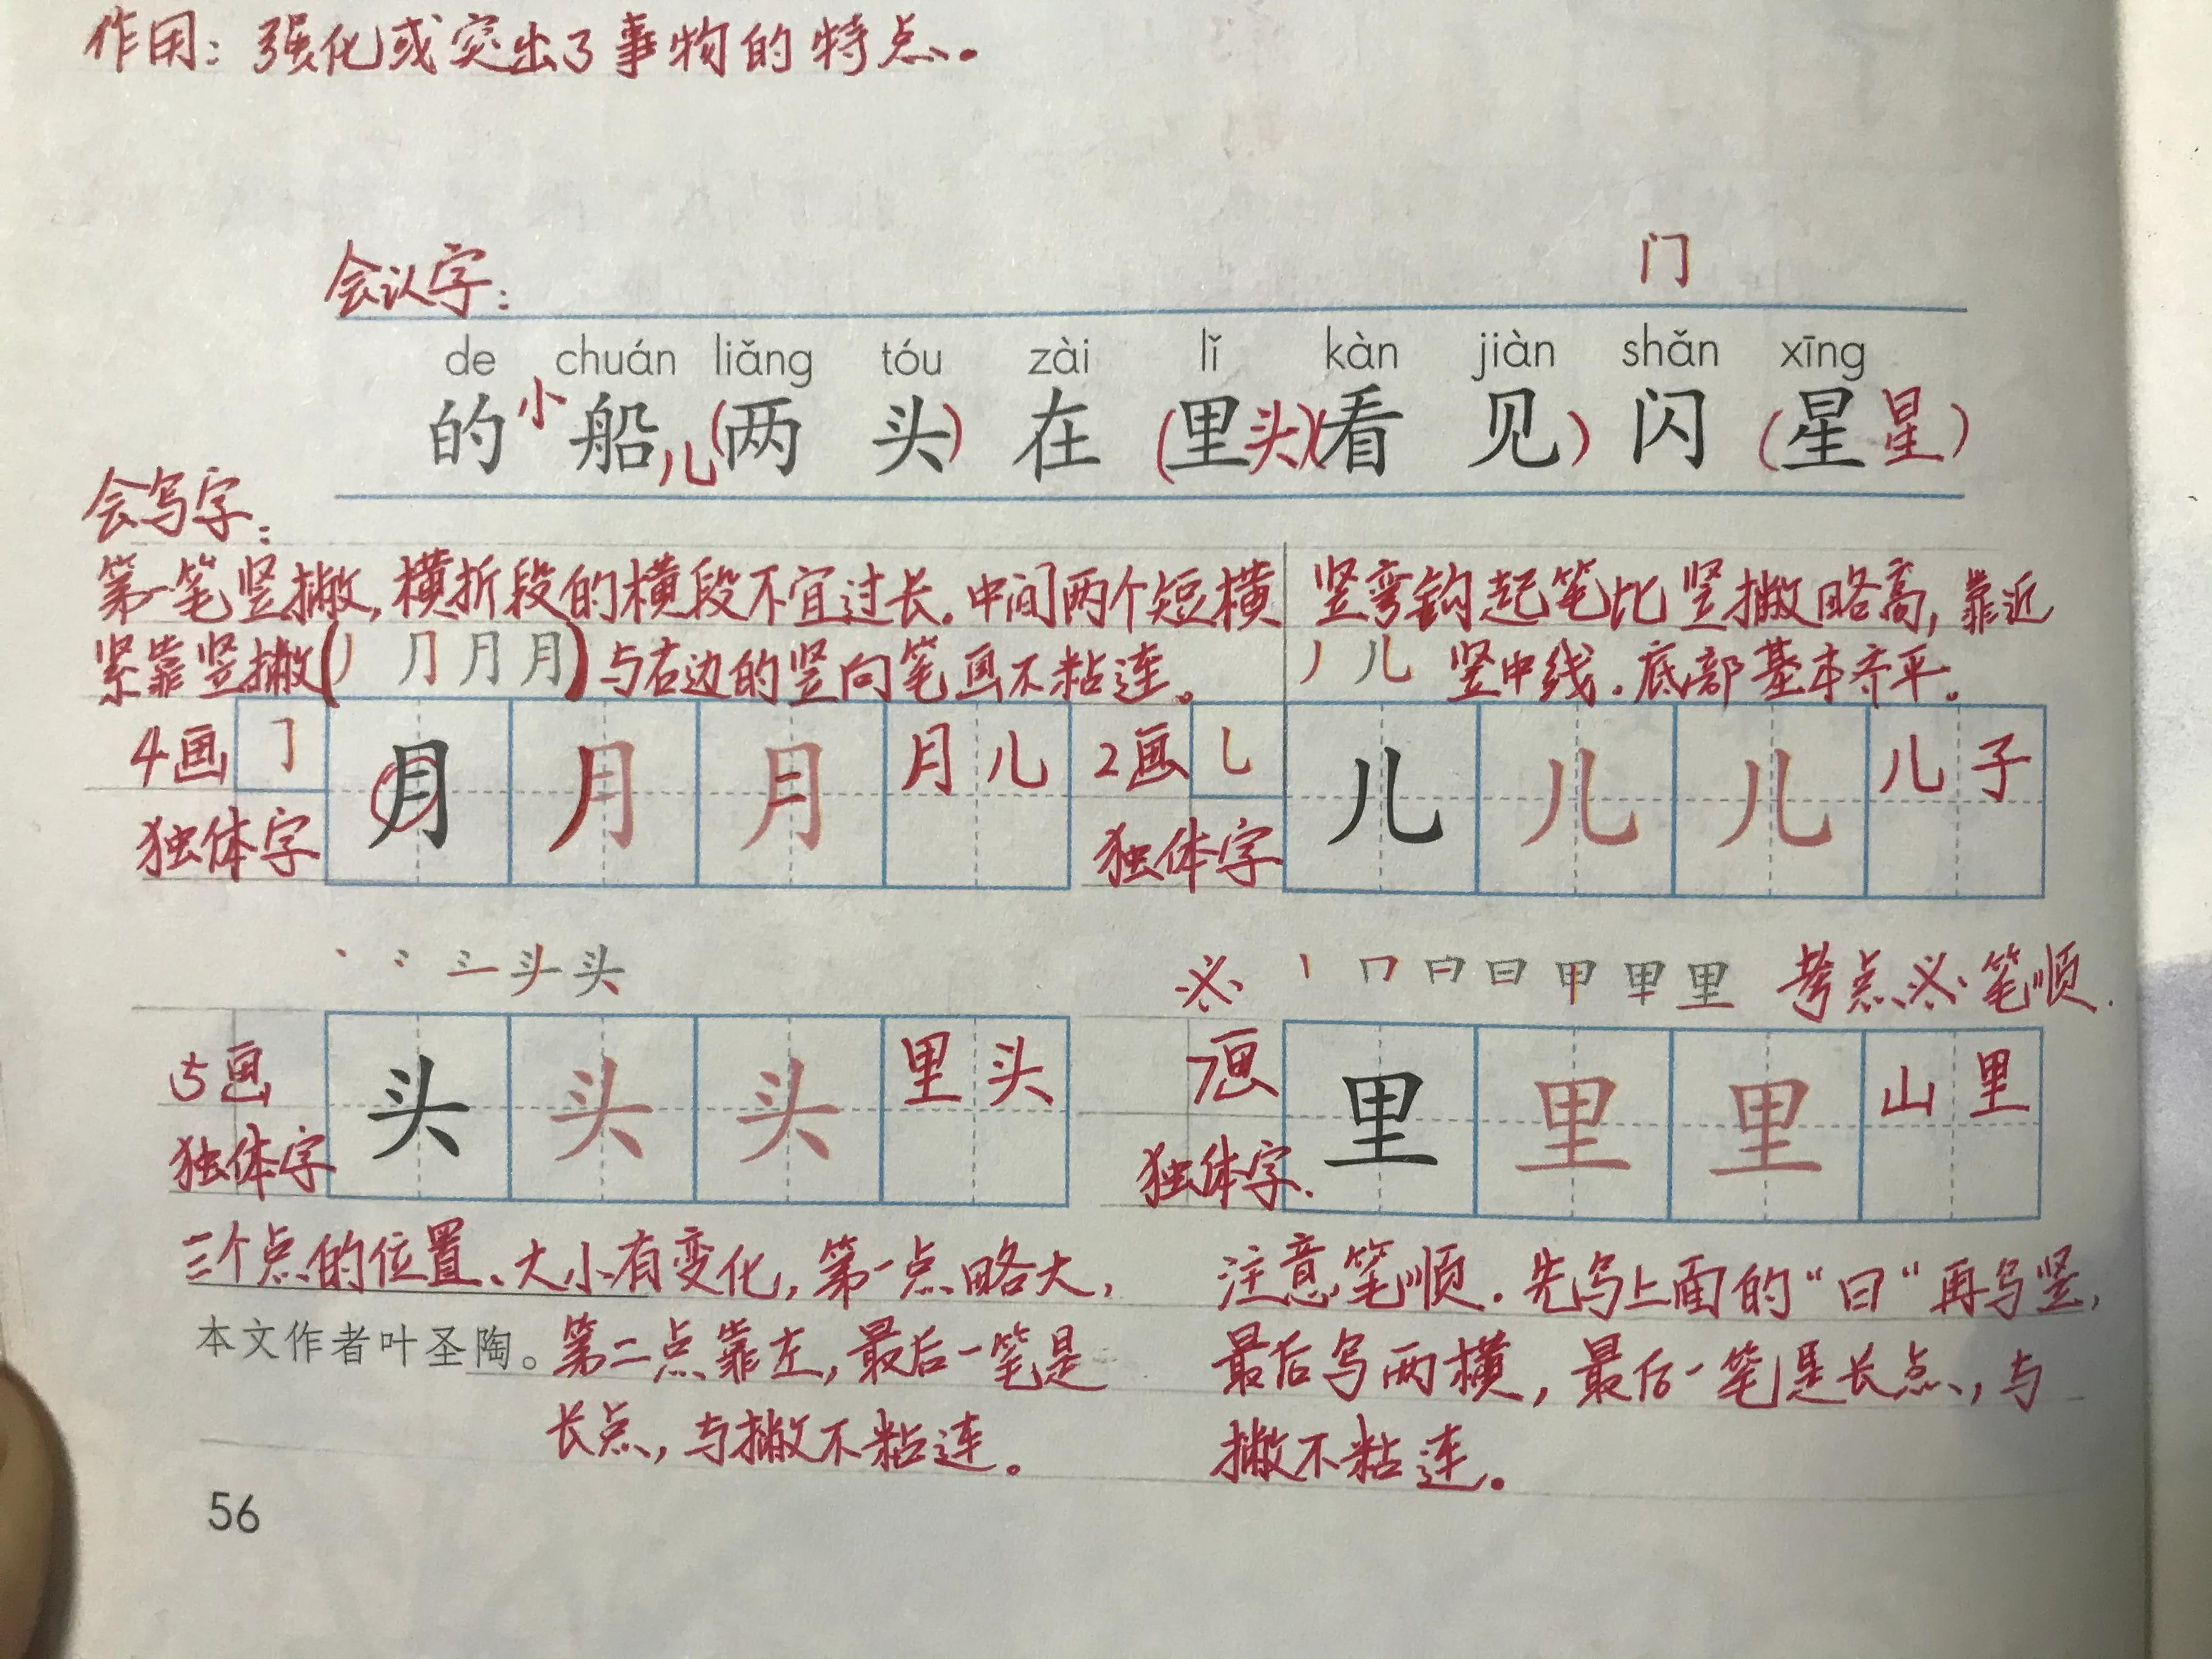 作用：强化或突出了事物的特点。
会认字： 门
de chuán liǎng tóu zài lǐ kàn jiàn shǎn xīng
的 小船儿 (两头) 在 (里头) (看见) 闪 (星星)
会写字：
第一笔竖撇，横折段的横段不宜过长。中间两个短横
紧靠竖撇(丿 ⺆ 月 月)与右边的竖向笔画不粘连。
竖弯钩起笔比竖撇略高，靠近
丿 儿 竖中线。底部基本齐平。
4画 ㇆ 月 月 月 月儿
独体字
2画 乚 儿 儿 儿 儿子
独体字
头
5画 头 头 头 里头
独体字
三个点的位置、大小有变化，第一点略大，
第二点靠左，最后一笔是
长点，与撇不粘连。
丨 冂 日 甲 里 考点 笔顺.
7画 里 里 里 山里
独体字.
注意笔顺.先写上面的“曰”再写竖，
最后写两横，最后一笔是长点，与
撇不粘连。
本文作者叶圣陶。
56